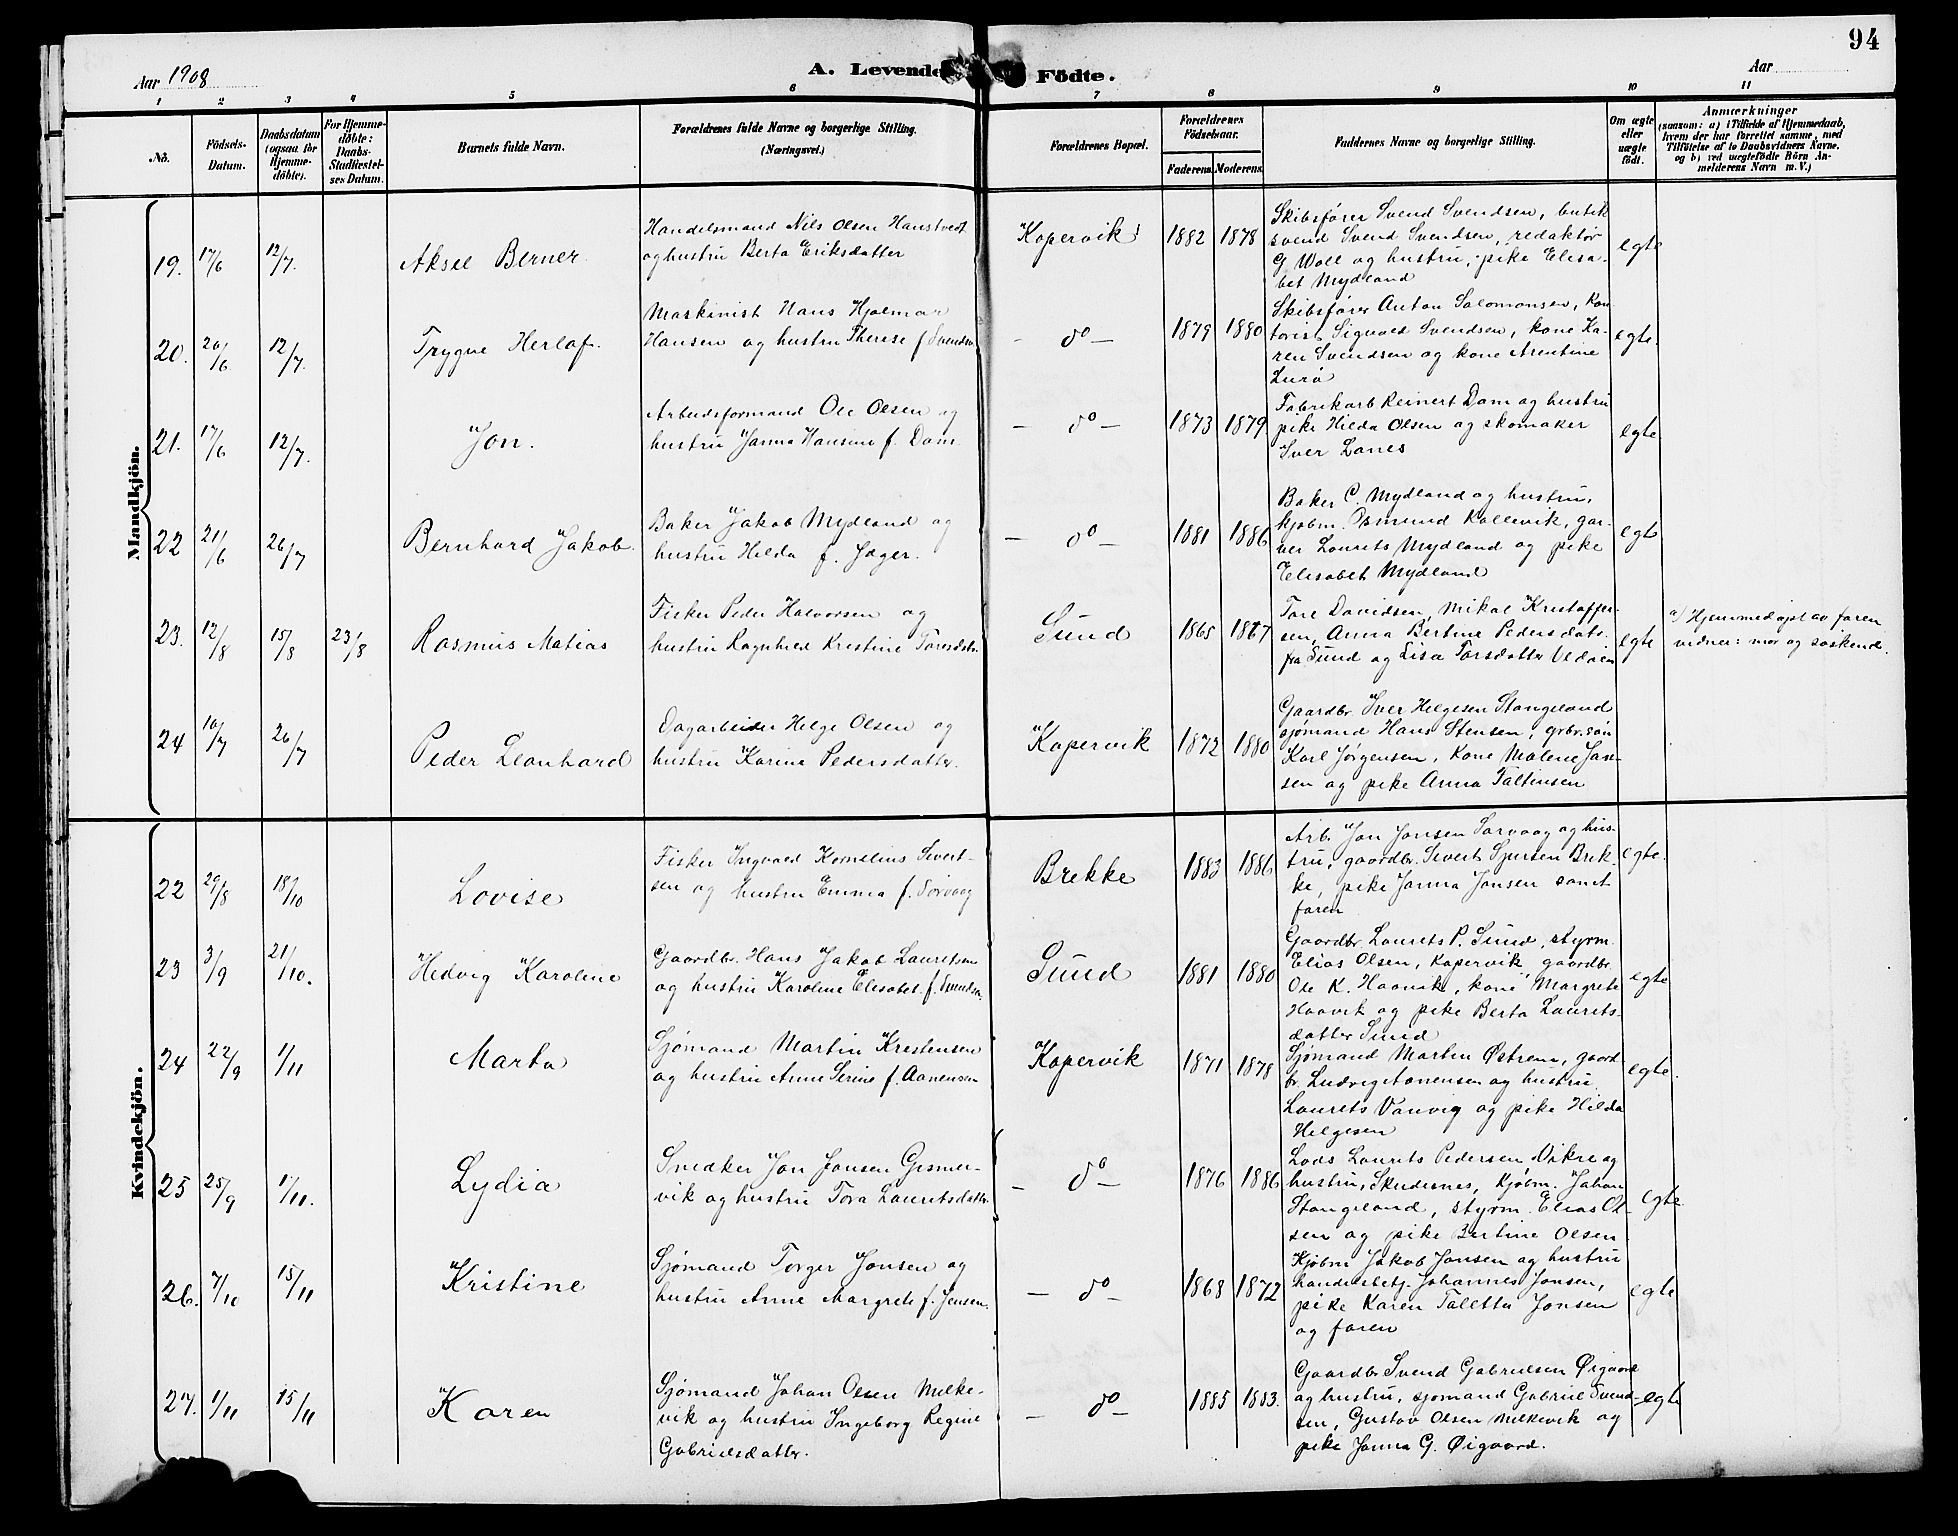 94
Aar 1908
A. Levende Födte.
Aar
1 2 3 4 5 6 7 8 9 10 11
No.
Födsels-Datum.
Daabsdatum (ogsaa for Hjemme-döbte).
For Hjemme-döbte: Daabs-Stadfæstel-ses Datum.
Barnets fulde Navn.
Forældrenes fulde Navne og borgerlige Stilling. (Næringsvei.)
Forældrenes Bopæl.
Forældrenes Födselsaar.
Faderens. Moderens.
Faddernes Navne og borgerlige Stilling.
Om ægte eller uægte födt.
Anmærkninger
(saasom: a) i Tilfælde af Hjemmedaab, hvem der har forrettet samme, med Tilföielse af to Daabsvidners Navne, og b) ved uægtefödte Börn An-melderens Navn m. V.)
Mandkjön.
19. 17/6 12/7. Aksel Berner
Handelsmand Nils Olsen Hanstvedt
og hustru Berta Eriksdatter
Kopervik 1882 1878
Skibsfører Svend Svendsen, butik
svend Svend Svendsen, redaktør
G Woll og hustru, pike Elisa-
bet Mydland
egte
20. 20/6 12/7. Trygve Herlof.
Maskinist Hans Hjalmar
Hansen og hustru Therese f. Svendsen
– do – 1879 1880
Skibsfører Anton Salomonsen, kon
torist Sigvald Svendsen, kone Ka-
ren Svendsen og kone Arentine
Lurø
egte.
21. 17/6 12/7. Jon.
Arbeidsformand Ole Olsen og
hustru Janna Hansine f. Dam.
– do – 1873 1879
Fabrikarb Reinert Dam og hustru
pike Hilda Olsen og skomaker
Iver Lanes
egte
22 21/6 26/7 Bernhard Jakob.
Baker Jakob Mydland og
hustru Hilda f. Jæger.
– do – 1881 1886
Baker C. Mydland og hustru,
kjøbm. Osmund Kallevik, gar-
ver Laurets Mydland og pike
Elisabet Mydland
egte
23. 12/8 15/8 23/8 Rasmus Matias
Fisker Peder Halvorsen og
hustru Ragnhild Kristine Toresdtr.
Sund 1865 1867
Tore Davidsen, Mikal Kristoffer-
sen, Anna Bertine Pedersdatr.
fra Sund og Lisa Torsdatter Vedøien
egte
a) Hjemmedøpt av faren
vidner: mor og søskend.
24 10/7 26/7 Peder Leonhard
Dagarbeider Helge Olsen og
hustru Karine Pedersdatter.
Kopervik 1872 1880
Gaardbr. Iver Helgesen Stangeland
sjømand Hans Stensen, grbr.søn
Karl Jørgensen, kone Malene Jan-
sen og pike Anna Taltensen
Kvindekjön.
22 29/8 18/10 Lovise
Fisker Ingvald Kornelius Sivert-
sen og hustru Emma f. Sørvaag
Brekke 1883 1886
Arb. Jon Jonsen Sørvaag og hus-
tru, gaardbr. Sivert Sjursen Brek-
ke, pike Janna Jonsen samt
faren
egte.
23 3/9 21/10. Hedvig Karoline
Gaardbr. Hans Jakob Lauretsen
og hustru Karoline Elisabet f. Svendsen
Sund 1881 1880
Gaardbr. Laurets P. Sund, styrm.
Elias Olsen, Kopervik, gaardbr.
Ole K. Haavik, kone Margrete
Haavik og pike Berta Laurets-
datter Sund
egte
24 22/9 1/11 Marta
Sjømand Martin Kristensen
og hustru Anne Serine f. Aanensen
Kopervik 1871 1878
Sjømand Martin Østrem, gaard-
br. Ludvig Aanensen og hustru
Laurets Vanvig og pike Hilda
Helgesen
egte.
25 25/9 1/11. Lydia
Snedker Jon Jonsen Gismer-
vik og hustru Tora Lauritsdatter
– do – 1876 1886
Lods Laurets Pedersen Vikre og
hustru, Skudesnes, kjøbm. Johan
Stangeland, styrm. Elias Ol-
sen og pike Bertine Olsen
egte
26. 7/10 15/11 Kristine
Sjømand Torger Jonsen og
hustru Anne Margrete f. Jensen.
– do – 1868 1872
Kjøbm Jakob Jonsen og hustru
handelsbetj. Johannes Jonsen,
pike Karen Taletta Jonsen
og faren
egte
27. 1/11 15/11 Karen
Sjømand Johan Olsen Melke-
vik og hustru Ingeborg Regine
Gabrielsdatter.
– do – 1885 1883.
Gaardbr Svend Gabrielsen Øigaard
og hustru, sjømand Gabriel Svend-
sen, Gustav Olsen Melkevik og
pike Janna G. Øigaard.
egte